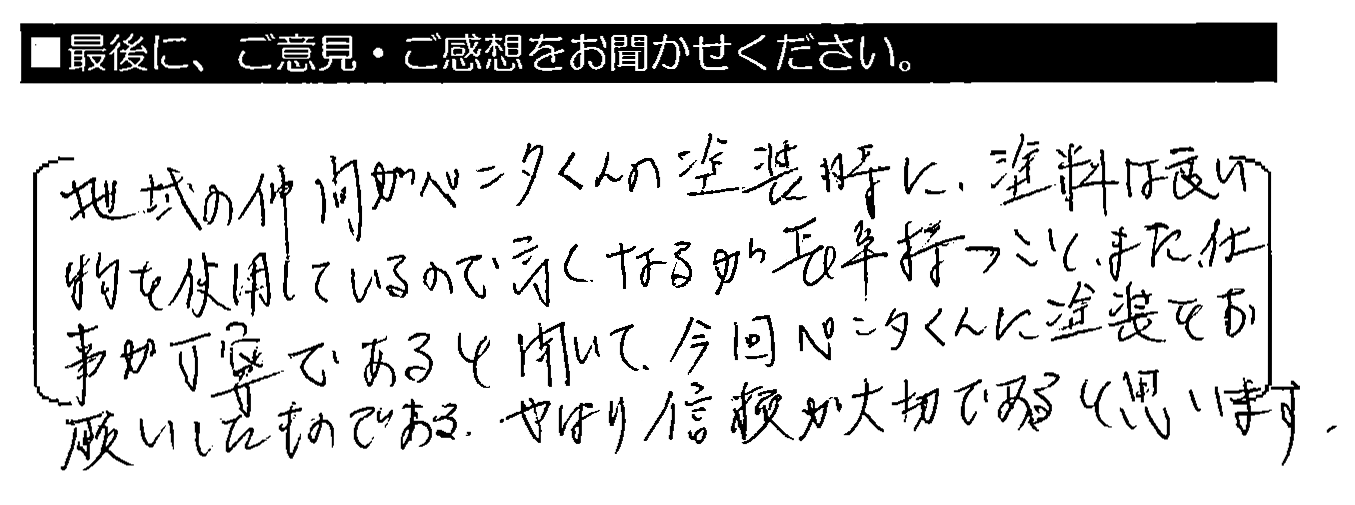 ■最後に、ご意見・ご感想をお聞かせください。
地域の仲間がペンタくんの塗装時に、塗料は良い
物を使用しているので高くなるが長年持つこと、また、仕
事が丁寧であると聞いて、今回ペンタくんに塗装をお
願いしたものである。やはり信頼が大切であると思います。